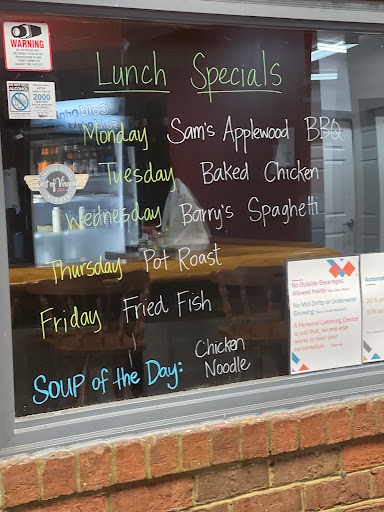 WARNING
Lunch Specials
Monday Sam's Applewood BBQ
Tuesday Baked Chicken
Wednesday Barry's Spaghetti
Thursday Pot Roast
Friday Fried Fish
SOUP of the Day: Chicken
Noodle
2000
No Outside Beverages
Allowed Inside
No Mid-Drifts or Underwear
Showing
A Personal Listening Device
is just that, no one else
wants to hear your
conversation.